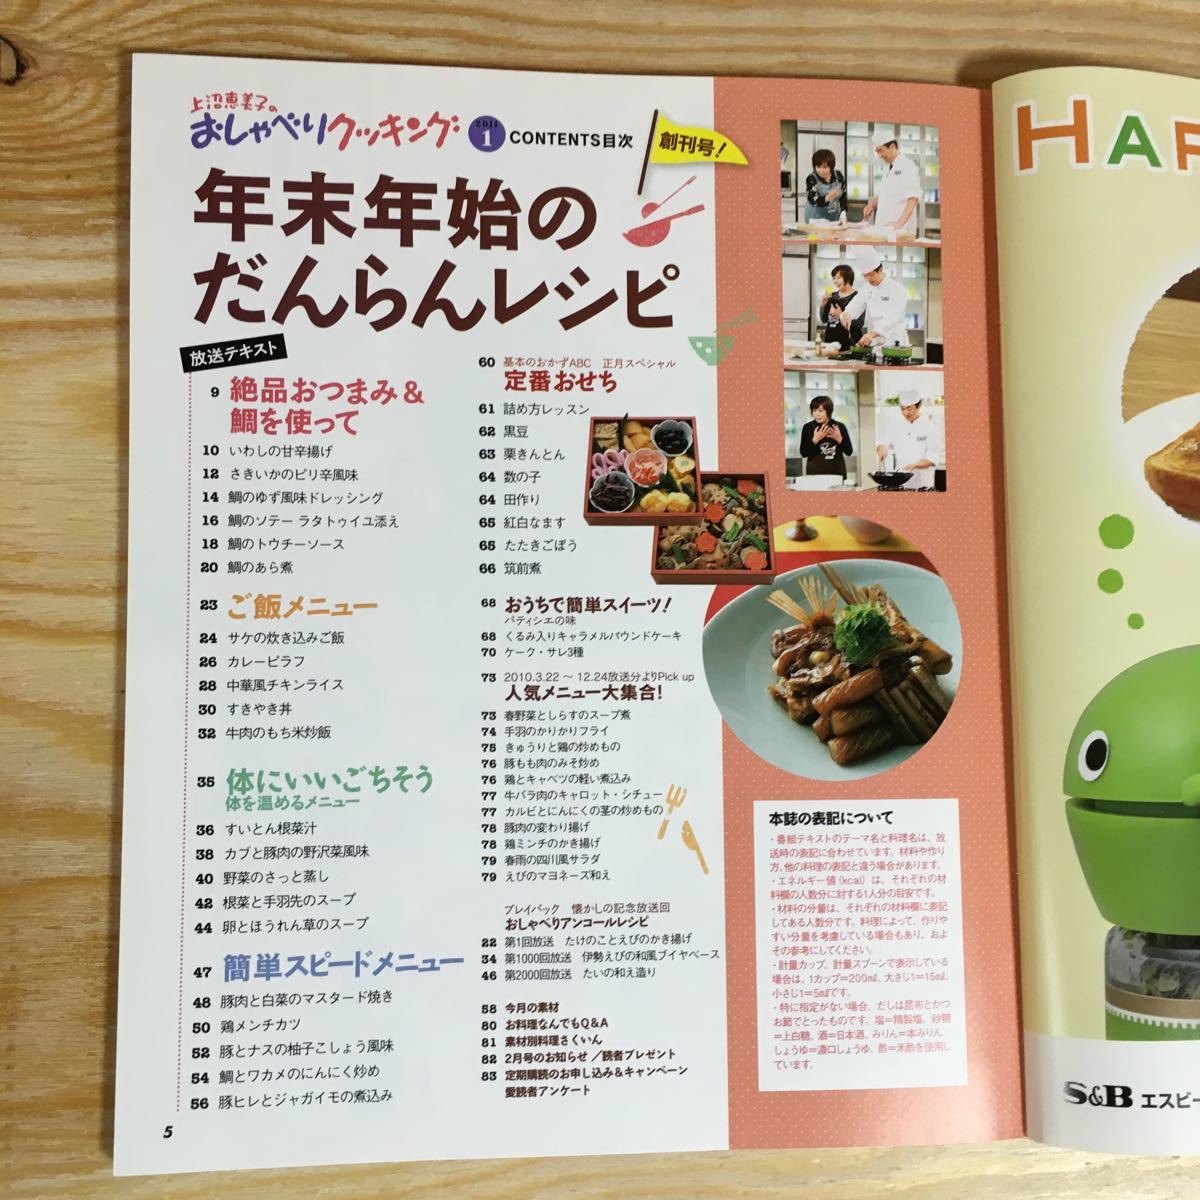 上沼恵美子の
おしゃべりクッキング
2011
1
CONTENTS目次
創刊号!
年末年始の
だんらんレシピ
放送テキスト
9 絶品おつまみ&
鯛を使って
10 いわしの甘辛揚げ
12 さきいかのピリ辛風味
14 鯛のゆず風味ドレッシング
16 鯛のソテー ラタトゥイユ添え
18 鯛のトウチーソース
20 鯛のあら煮
23 ご飯メニュー
24 サケの炊き込みご飯
26 カレーピラフ
28 中華風チキンライス
30 すきやき丼
32 牛肉のもち米炒飯
35 体にいいごちそう
体を温めるメニュー
36 すいとん根菜汁
38 カブと豚肉の野沢菜風味
40 野菜のさっと蒸し
42 根菜と手羽先のスープ
44 卵とほうれん草のスープ
47 簡単スピードメニュー
48 豚肉と白菜のマスタード焼き
50 鶏メンチカツ
52 豚とナスの柚子こしょう風味
54 鯛とワカメのにんにく炒め
56 豚ヒレとジャガイモの煮込み
5
60 基本のおかずABC 正月スペシャル
定番おせち
61 詰め方レッスン
62 黒豆
63 栗きんとん
64 数の子
64 田作り
65 紅白なます
65 たたきごぼう
66 筑前煮
68 おうちで簡単スイーツ!
パティシエの味
68 くるみ入りキャラメルパウンドケーキ
70 ケーク・サレ3種
73 2010.3.22 〜 12.24放送分よりPick up
人気メニュー大集合!
73 春野菜としらすのスープ煮
74 手羽のかりかりフライ
75 きゅうりと鶏の炒めもの
76 豚もも肉のみそ炒め
76 鶏とキャベツの軽い煮込み
77 牛バラ肉のキャロット・シチュー
77 カルビとにんにくの茎の炒めもの
78 豚肉の変わり揚げ
78 鶏ミンチのかき揚げ
79 春雨の四川風サラダ
79 えびのマヨネーズ和え
プレイバック 懐かしの記念放送回
おしゃべりアンコールレシピ
22 第1回放送 たけのことえびのかき揚げ
34 第1000回放送 伊勢えびの和風ブイヤベース
46 第2000回放送 たいの和え造り
58 今月の素材
80 お料理なんでもQ&A
81 素材別料理さくいん
82 2月号のお知らせ／読者プレゼント
83 定期購読のお申し込み&キャンペーン
愛読者アンケート
本誌の表記について
・番組テキストのテーマ名と料理名は、放
送時の表記に合わせています。材料や作り
方、他の料理の表記と違う場合があります。
・エネルギー値(kcal)は、それぞれの材
料欄の人数分に対する1人分の目安です。
・材料の分量は、それぞれの材料欄に表記
してある人数分です。料理によって、作りや
すい分量を考慮している場合もあり、およ
その参考にしてください。
・計量カップ、計量スプーンで表示している
場合は、1カップ=200㎖、大さじ1=15㎖、
小さじ1=5㎖です。
・特に指定がない場合、だしは昆布とかつ
お節でとったものです。塩=精製塩、砂糖
=上白糖、酒=日本酒、みりん=本みりん、
しょうゆ=濃口しょうゆ、酢=米酢を使用し
ています。
HAP
S&B エスビー